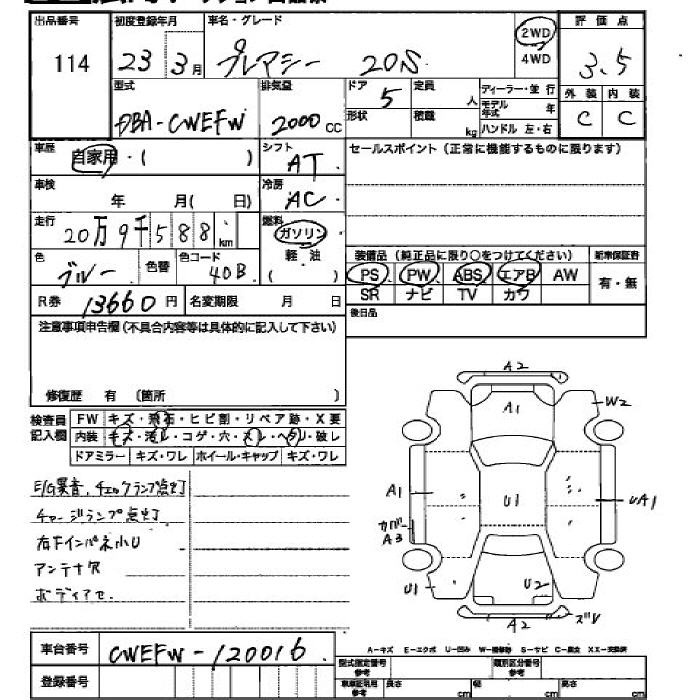 出品番号 初度登録年月 車名・グレード 2WD 評価点
114 23 3月 プレマシー 20S 4WD 3.5
型式 排気量 ドア 5 定員 人 ディーラー・並行 外装 内装
DBA-CWEFW 2000cc 形状 積載 kg モデル年式 年 C C
ハンドル 左・右
車歴 自家用・( ) シフト AT セールスポイント (正常に機能するものに限ります)
車検 年 月( 日) 冷房 AC
走行 20万9千588km 燃料 ガソリン
軽油
色 ブルー 色替 色コード 40B ( ) 装備品 (純正品に限り○をつけてください) 新車保証書
PS PW ABS エアB AW 有・無
R券 13660円 名変期限 月 日 SR ナビ TV カワ
注意事項申告欄 (不具合内容等は具体的に記入して下さい) 後日品
修復歴 有 (箇所 )
検査員 FW キズ・飛石・ヒビ割・リペア跡・X要
記入欄 内装 キズ・汚レ・コゲ・穴・スレ・ヘタリ・破レ
ドアミラー キズ・ワレ ホイール・キャップ キズ・ワレ
E/G異音、チェックランプ点灯
チャージランプ点灯
右下インパネ小U
アンテナ欠
ボディアセ
A2
A1
W2
A1 U1 UA1
カバー
A3
U1 U2
A2 ズレ
A-キズ E-エクボ U-凹み W-補修跡 S-サビ C-腐食 XX-交換済
車台番号 CWEFW-120016
型式指定番号 参考 類別区分番号 参考
登録番号 車庫証明用 参考 長さ cm 幅 cm 高さ cm